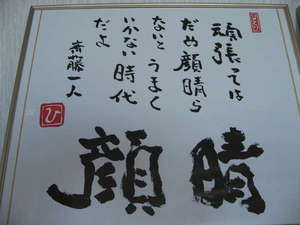 頑張っては
だめ顔晴ら
ないと うまく
いかない時代
だよ
斎藤一人
ひ
顔晴